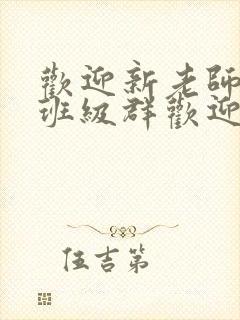 歡迎新老師
班級群歡迎
伍吉第